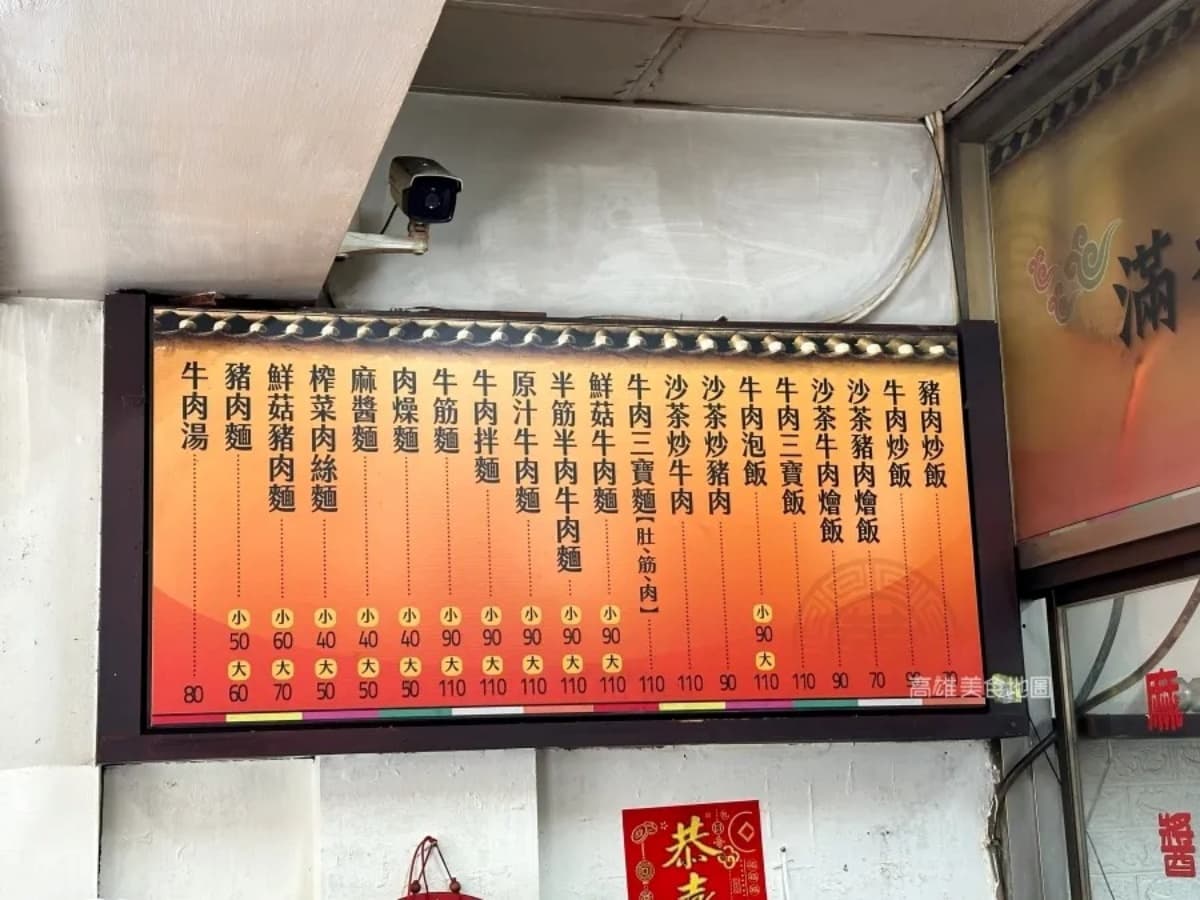 豬肉炒飯
牛肉炒飯
沙茶豬肉燴飯 70
沙茶牛肉燴飯 90
牛肉三寶飯 110
牛肉泡飯 小 90 大 110
沙茶炒豬肉 90
沙茶炒牛肉 110
牛肉三寶麵【肚、筋、肉】 110
鮮菇牛肉麵 小 90 大 110
半筋半肉牛肉麵 小 90 大 110
原汁牛肉麵 小 90 大 110
牛肉拌麵 小 90 大 110
牛筋麵 小 90 大 110
肉燥麵 小 40 大 50
麻醬麵 小 40 大 50
榨菜肉絲麵 小 40 大 50
鮮菇豬肉麵 小 60 大 70
豬肉麵 小 50 大 60
牛肉湯 80
高雄美食地圖
滿
麻
醬
恭